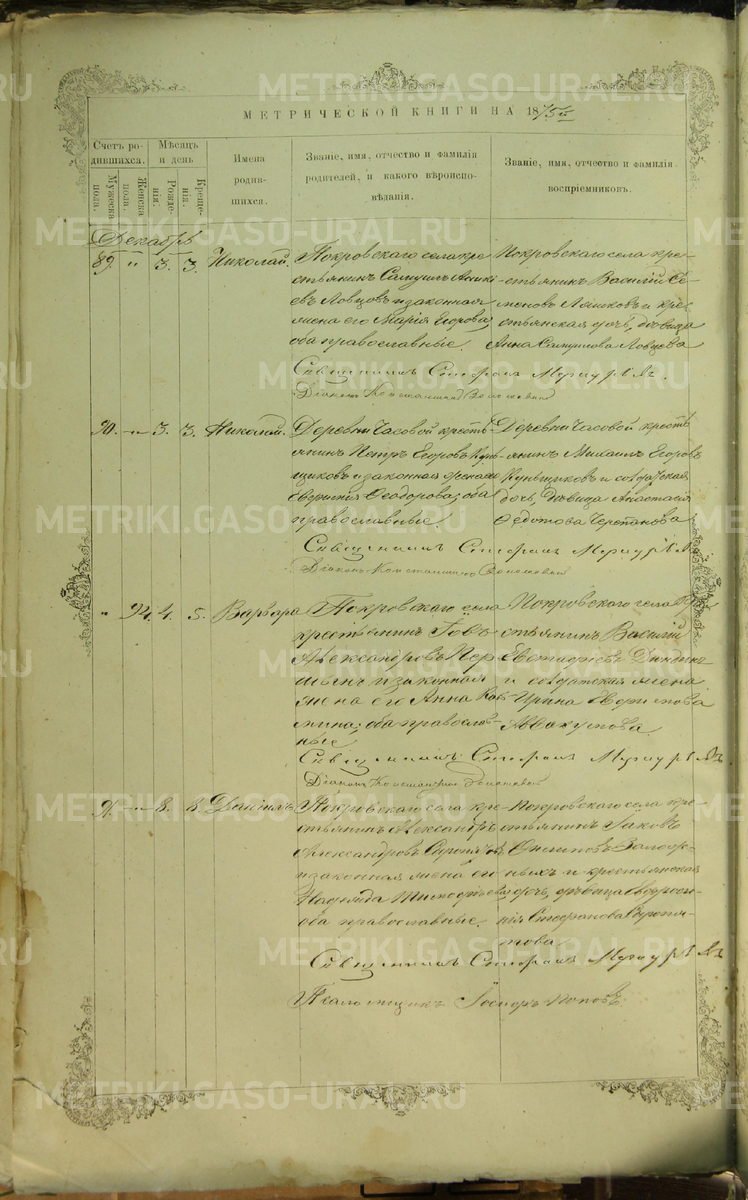 METRIKI.GASO-URAL.RU
МЕТРИЧЕСКОЙ КНИГИ НА 1875й
Счетъ ро-
дившихся.
Мѣсяцъ
и день
Имена
родив-
шихся.
Званіе, имя, отчество и фамилія
родителей, и какого вѣроиспо-
вѣданія.
Званіе, имя, отчество и фамилія
воспріемниковъ.
Мужеска
пола.
Женска
пола.
Рожде-
нія.
Креще-
нія.
Декабрь
89. " 3. 3. Николай.
Покровскаго села кре-
стьянинъ Самуилъ Аники-
евъ Ловцовъ и законная
жена его Марія Егорова;
оба православные.
Покровскаго села кре-
стьянинъ Василій Се-
меновъ и кре-
стьянская дочь, дѣвица
Анна Самуилова Ловцова
Священникъ Стефанъ
Діаконъ Константинъ
90. " 3. 3. Николай.
Деревни Часовой кресть-
янинъ Петръ Егоровъ Кунь-
щиковъ и законная жена его
Евгенія Ѳеодорова; оба
православные.
Деревни Часовой кресть-
янинъ Михаилъ Егоровъ
Куньщиковъ и солдатская
дочь, дѣвица Анастасія
Ѳедотова Черепанова
Священникъ Стефанъ
Діаконъ Константинъ
" 94. 4. 5. Варвара
Покровскаго села
крестьянинъ Іовъ
Александровъ Пер-
шинъ и законная
жена его Анна
оба православ-
ные
Покровскаго села кре-
стьянинъ Василій
Евстафіевъ
и солдатская жена
Ирина
Аввакумова
Священникъ Стефанъ
Діаконъ Константинъ
91. " 8. 8. Даніилъ
Покровскаго села кре-
стьянинъ Александръ
Александровъ Сыропятовъ
и законная жена его
Надежда Тимофѣева;
оба православные.
Покровскаго села кре-
стьянинъ Іаковъ
Осиповъ
и крестьянская
дочь, дѣвица Евдо-
кія Стефанова Сыропя-
това
Священникъ Стефанъ
Псаломщикъ Поповъ